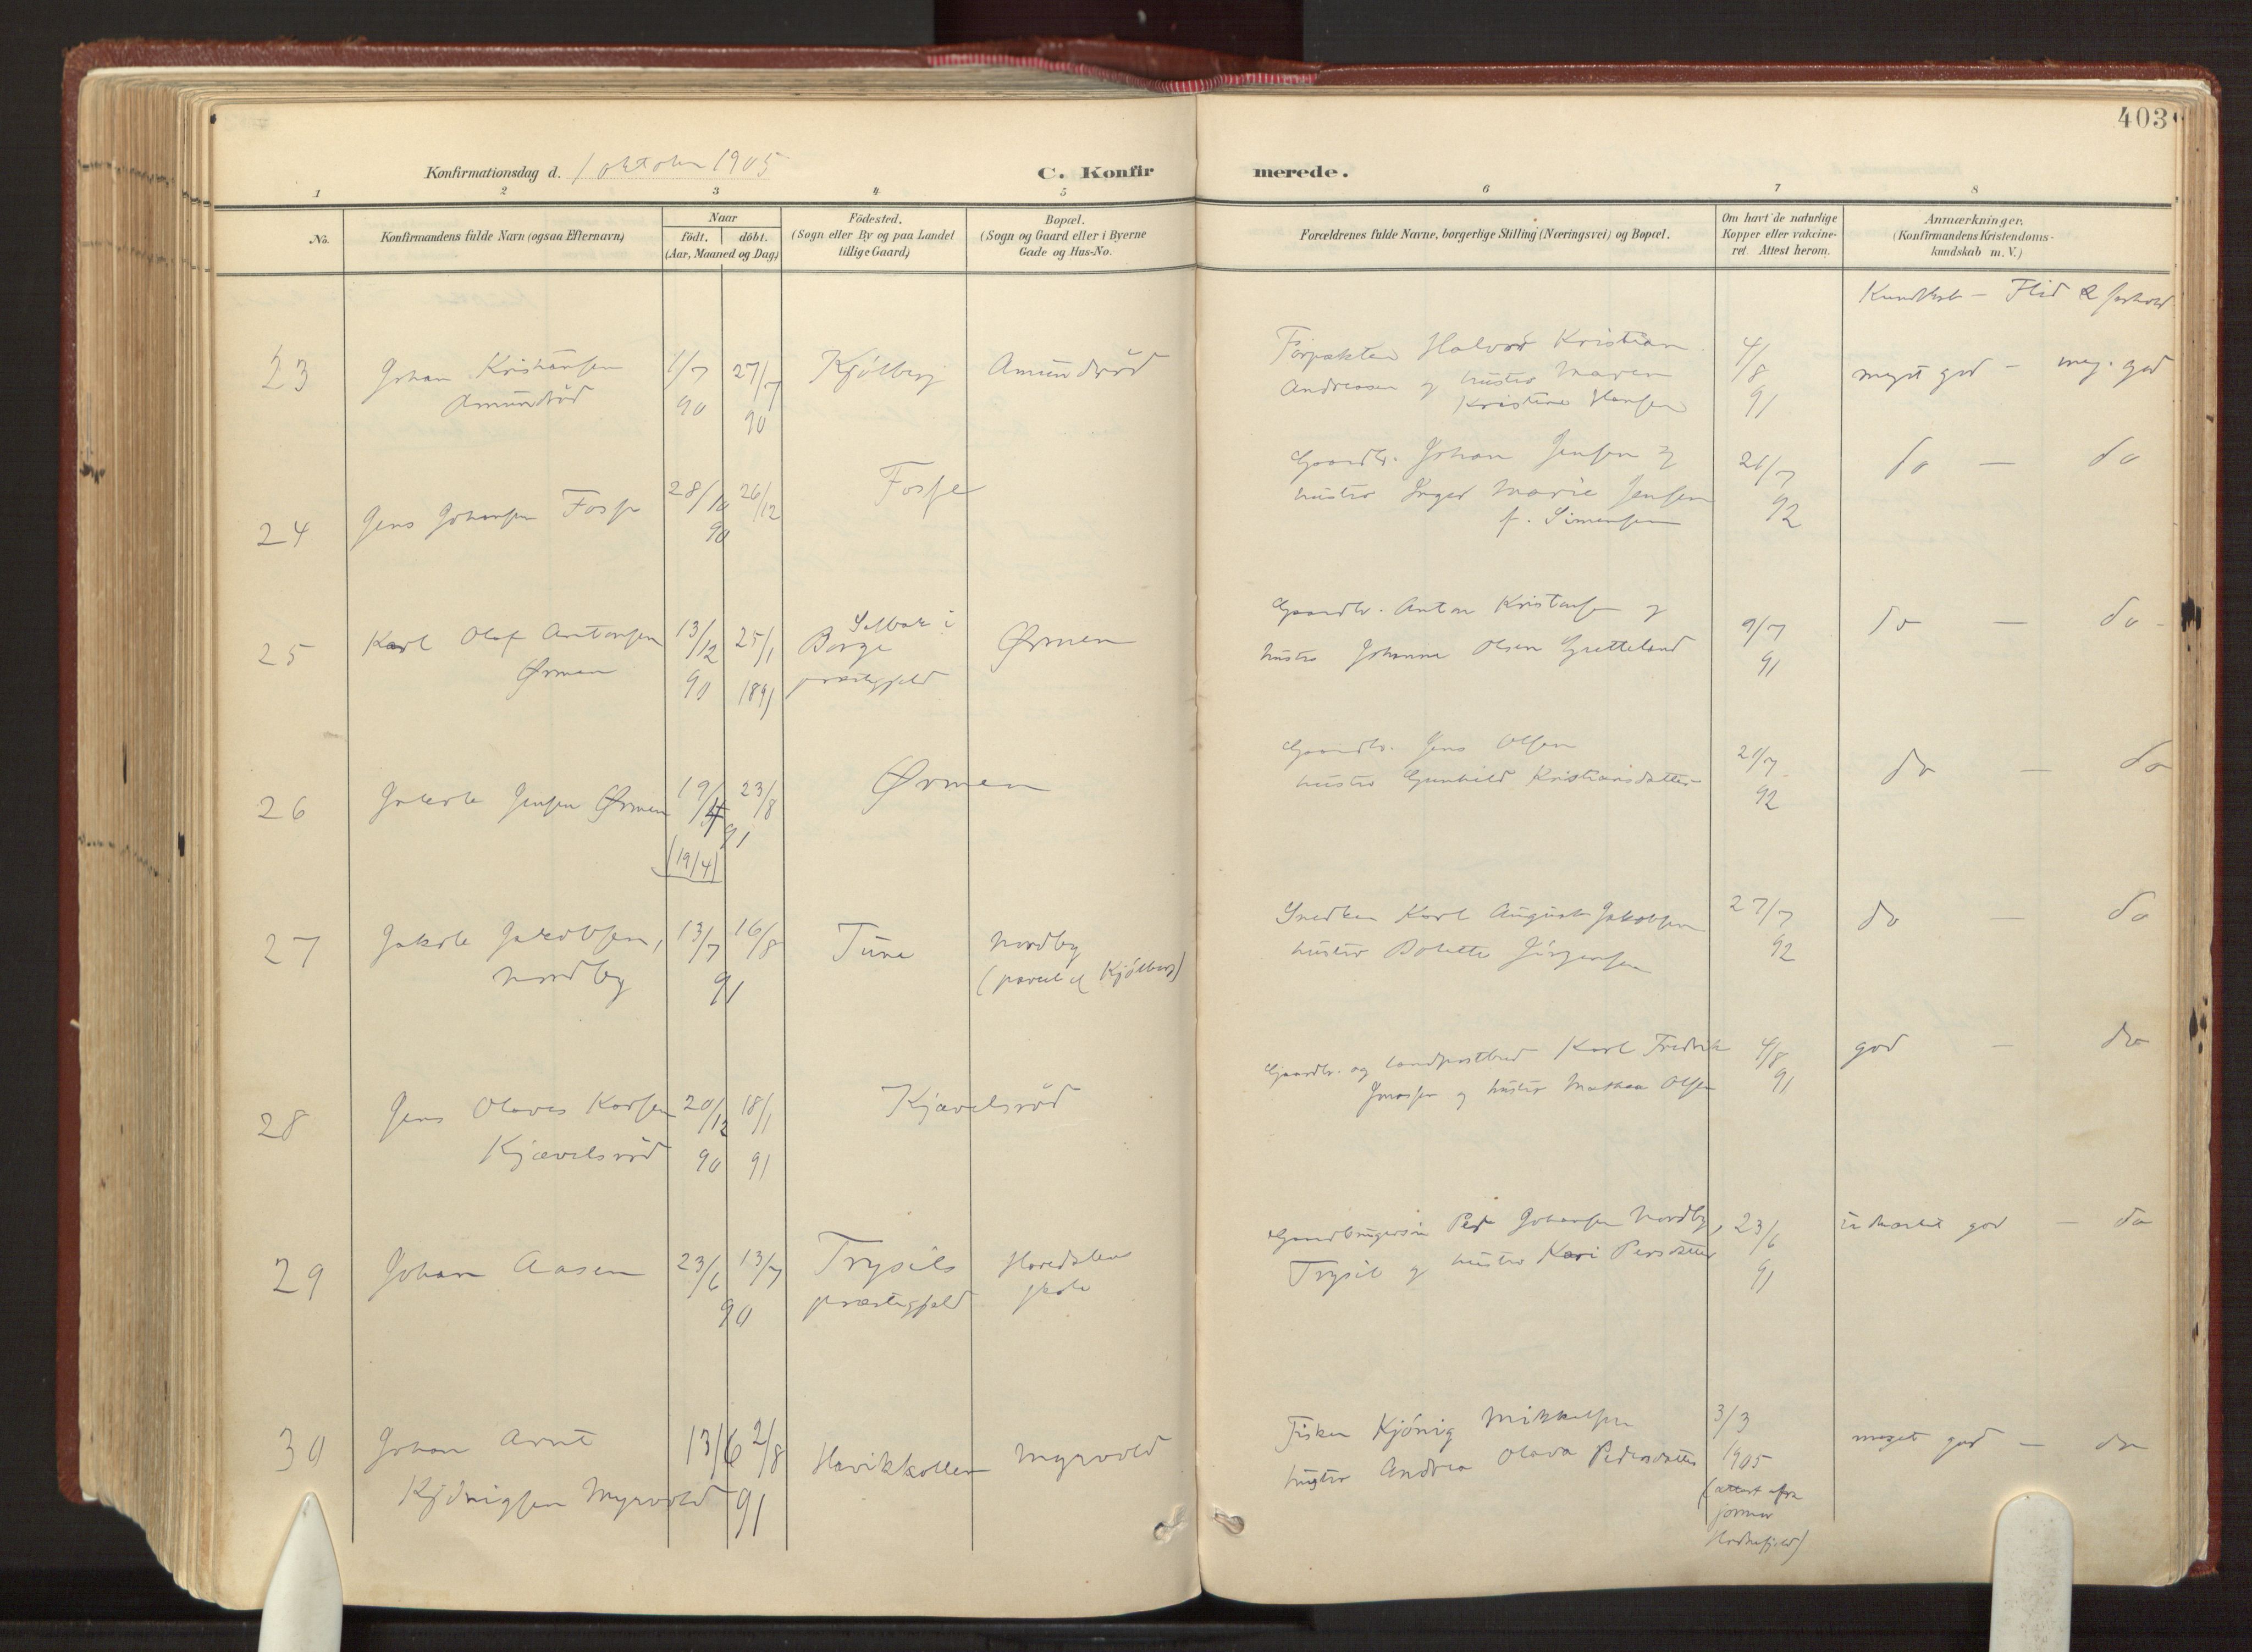 403
Konfirmationsdag d. 1 oktober 1905
C. Konfirmerede.
1 2 3 4 5 6 7 8
No.
Konfirmandens fulde Navn (ogsaa Efternavn)
Naar
födt. döbt.
(Aar, Maaned og Dag)
Födested.
(Sogn eller By og paa Landet
tillige Gaard)
Bopæl.
(Sogn og Gaard eller i Byerne
Gade og Hus-No.
Forældrenes fulde Navne, borgerlige Stilling (Næringsvei) og Bopæl.
Om havt de naturlige
Kopper eller vaccine-
ret. Attest herom.
Anmærkninger.
(Konfirmandens Kristendoms-
kundskab m. V.)
Kundskab – Flid & forhold
23
Johan Kristiansen
Amundrød
1/7
90
27/7
90
Kjölberg
Amundröd
Forpakter Halvor Kristian
Andreasen og hustru Maren
Kristine Hansen
4/8
91
meget god – meg. god
24
Jens Johansen Fosse
28/10
90
26/12
Fosse
Gaardbr. Johan Jensen og
hustru Inger Marie Jensen
f. Simensen
21/7
92
do – do
25
Karl Olaf Antonsen
Ørmen
13/12
90
25/1
1891
Selbak i
Borge
præstegjeld
Ørmen
Gaardbr. Anton Kristensen og
hustru Johanne Olsen Grutteland
9/7
91
do – do
26
Jakob Jensen Ørmen
19/4
23/8
91
(19/4)
Ørmen
Gaardbr. Jens Olsen
hustru Gunhild Kristiansdatter
21/7
92
do – do
27
Jakob Jakobsen,
Nordby
13/7
16/8
91
Tune
Nordby
(parcel af Kjölberg)
Snedker Karl August Jakobsen
hustru Bolette Jörgensen
27/7
92
do – do
28
Jens Olaves Karlsen
Kjævelsröd
20/12
90
18/1
91
Kjævelsröd
Gaardbr. og landpostbud Karl Fredrik
Jonassen og hustru Mathea Olsen
4/8
91
god – do
29
Johan Aasen
23/6
13/7
90
Trysils
præstegjeld
Haredalen
skole
Gaardbrugersøn Peder Johansen Nordby,
Trysil og hustru Kari Persdatter
23/6
91
udmærket god – do
30
Johan Arnt
Kjönigsen Myrvold
13/6
2/8
91
Havikkollen
Myrvold
Fisker Kjönig Mikkelsen
hustru Andrea Olava Pedersdatter
3/3
1905
(attest fra
jormor
Hodnefjeld)
meget god – do